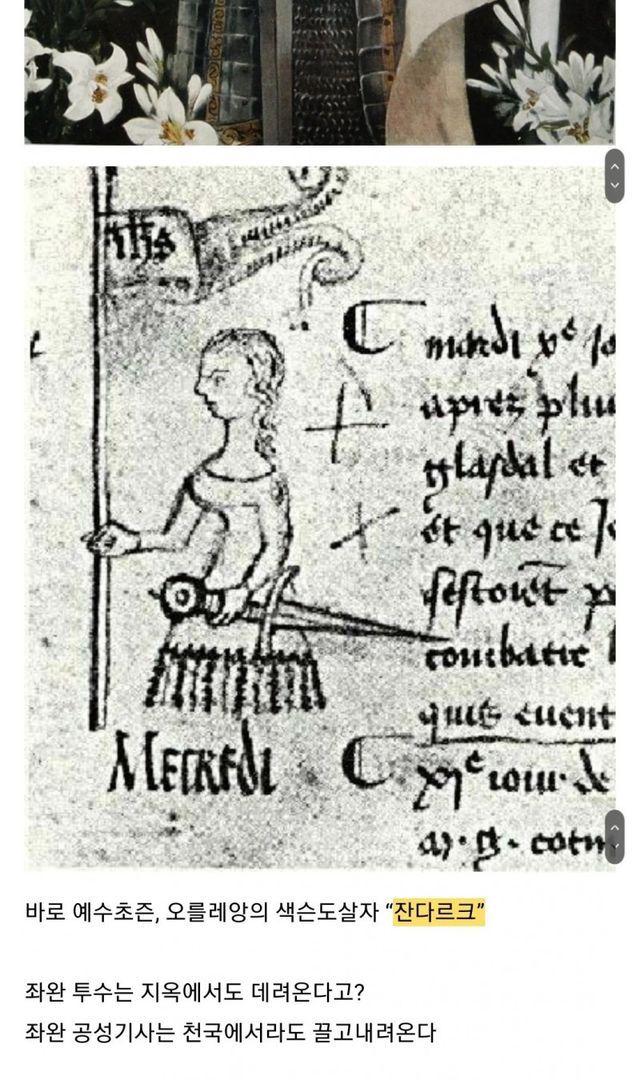 ihs
mardi xe jo
aprez plu
glasdal et
et que ce
combatre
quis euent
MECREDI
xie iour de
바로 예수초즌, 오를레앙의 색슨도살자 “잔다르크”
좌완 투수는 지옥에서도 데려온다고?
좌완 공성기사는 천국에서라도 끌고내려온다